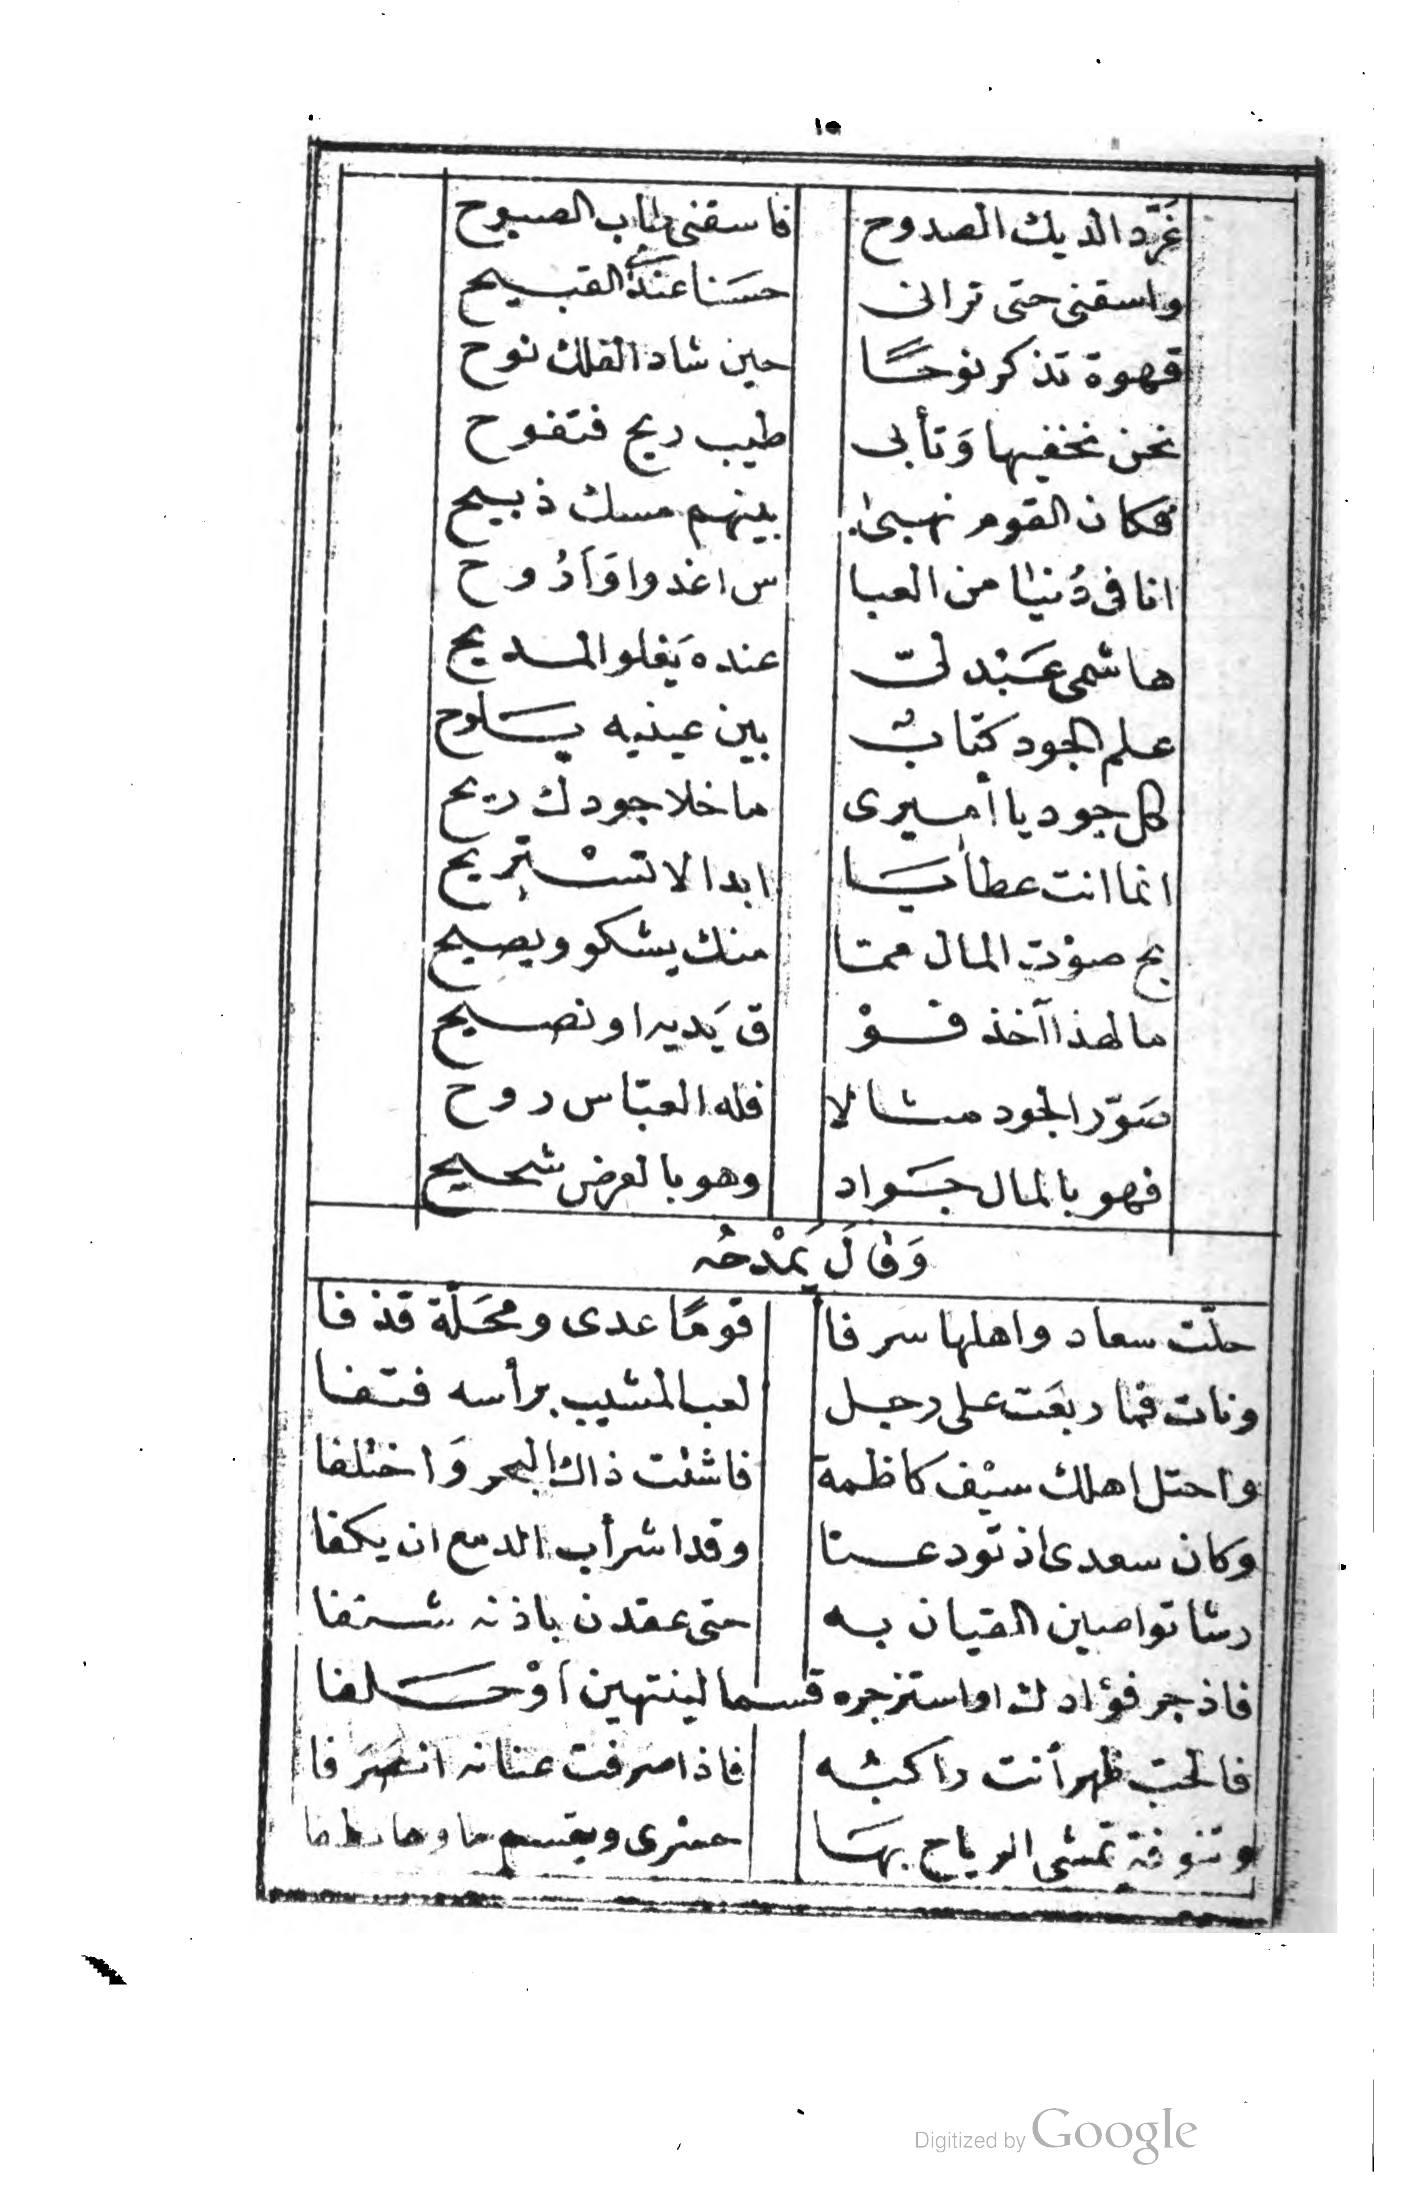 ١٥
غَرَّد الديك الصدوح فاسقنى طاب الصبوح
واسقنى حتى ترانى حسَنا عندىَ القبيح
قهوة تذكر نوحًا حين شاد الفلك نوح
نحن نخفيها وَتأبى طيب ريح فتفوح
فكان القوم نهبى بينهم مسك ذبيح
انا فى دُنيا من العبا س اغدوا وَأرُوح
هاشمى عَبْدلىّ عنده يَغلو المديح
علم الجود كتابٌ بين عينيه يلوح
كل جود يا أميرى ما خلا جودك ريح
انما انت عطايا ابدا لا تستْريح
بح صوْت المال مما منك يشكو ويصيح
ما لهذا آخذ فوْ ق يَديه او نصيح
صَوّر الجود مثالا فله العبّاس روح
فهو بالمال جَواد وهو بالعرض شحيح
وَقالَ يَمْدحُه
حلّت سعاد واهلها سرفا قومًا عدى ومحَلّة قذفا
ونات فما ربعَت على رجل لعب المشيب برأسه فتفا
واحتل اهلك سيْف كاظمة فاشئت ذاك البحر وَاختلفا
وكان سعدى اذ تودعنا وقد اشرأب الدمع ان يكفا
رشا تواصين القيان به حتى عقدن باذنه شنفا
فازجر فؤادك او استزجره قسما لينتهين اوْ حلفا
فالحب ظهر أنت راكبه فاذا صرفت عنانه انصَرَفا
وتنوفة تمشى الرياح بهَا حسْرى ويقسم
Digitized by Google